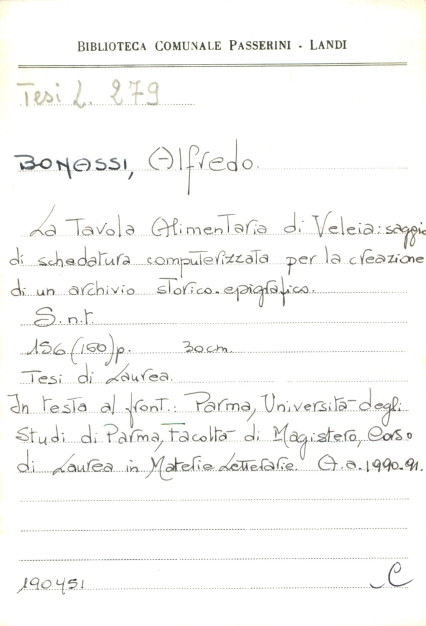 BIBLIOTECA COMUNALE PASSERINI - LANDI
Tesi L. 279
BONASSI, Alfredo.
La Tavola Alimentaria di Veleia: saggio
di schedatura computerizzata per la creazione
di un archivio storico-epigrafico.
S.n.t.
156 (160) p. 30 cm.
Tesi di Laurea.
In testa al front.: Parma, Università degli
Studi di Parma, Facoltà di Magistero, Corso
di Laurea in Materie Letterarie. A.a. 1990-91.
190451 C